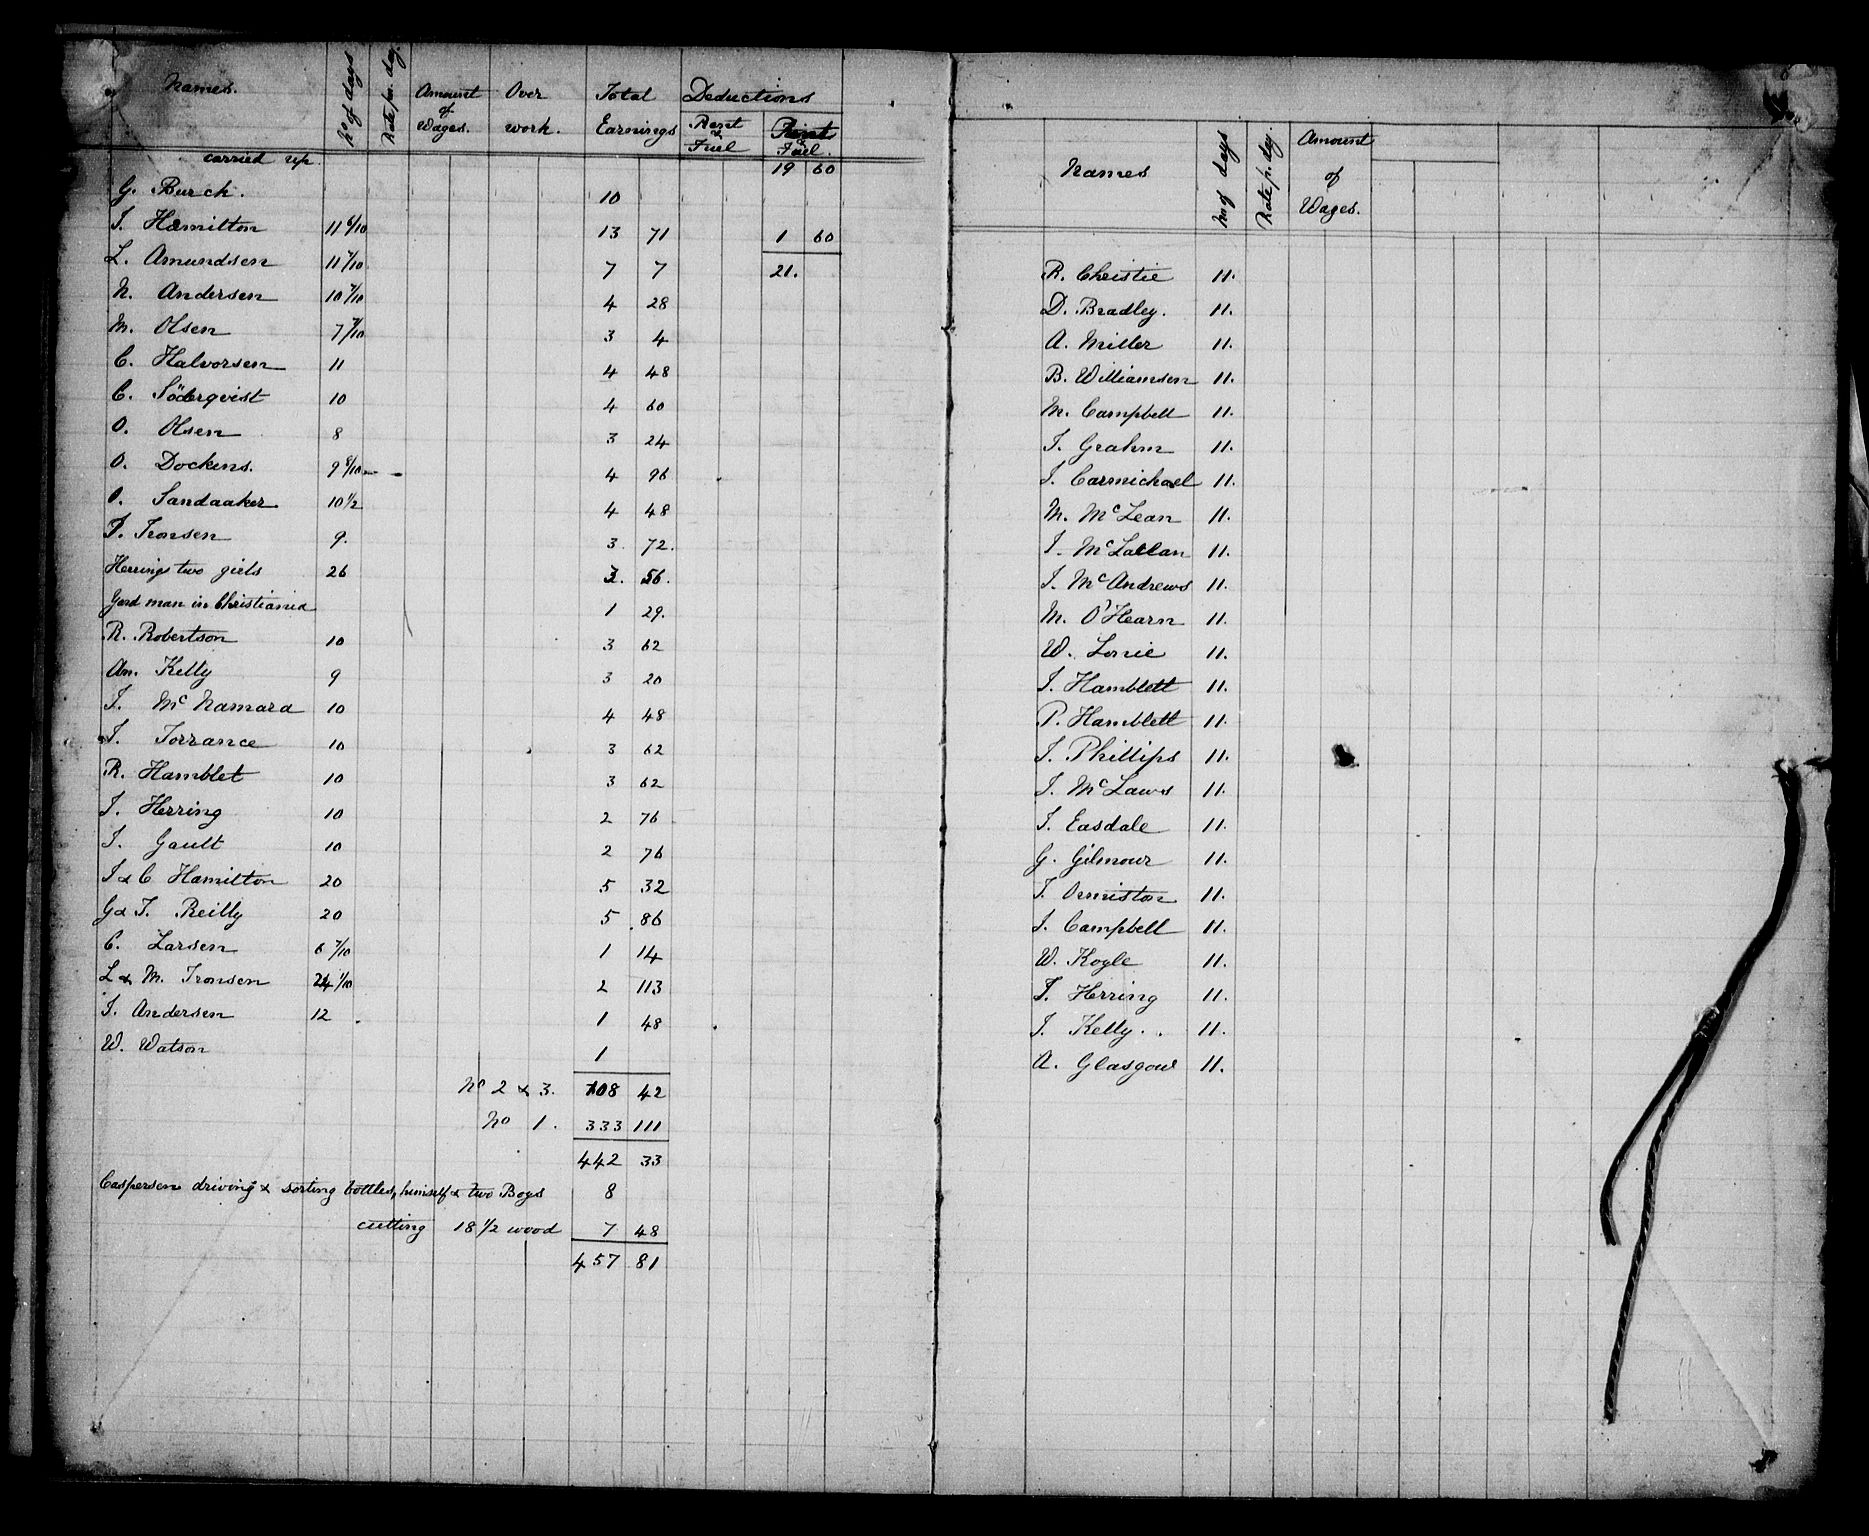 Names. No of days Rate pr. day. Amount of Wages. Over work. Total Earnings Deductions Rent & Fuel Rent & Fuel.
carried up. 19 60
G. Burch. 10
J. Hamilton 11 6/10 13 71 1 60
L. Amundsen 11 7/10 7 7 21.
N. Andersen 10 7/10 4 28
M. Olsen 7 7/10 3 4
C. Halvorsen 11 4 48
C. Söderqvist 10 4 60
O. Olsen 8 3 24
O. Dockens. 9 6/10 4 96
O. Sandaaker 10 1/2 4 48
T. Tronsen 9. 3. 72.
Herrings two girls 26 7. 56.
Yard man in Christiania 1 29.
R. Robertson 10 3 62
An. Kelly 9 3 20
J. McNamara 10 4 48
J. Torrance 10 3 62
R. Hamblet 10 3 62
J. Herring 10 2 76
J. Gault 10 2 76
J & C Hamilton 20 5 32
G & J. Reilly 20 5 86
C. Larsen 6 7/10 1 14
L & M. Tronsen 24 1/10 2 113
J. Andersen 12 1 48
W. Watson 1
No 2 & 3. 108 42
No 1. 333 111
442 33
Caspersen driving & sorting bottles, himself & two Boys 8
cutting 18 1/2 wood 7 48
457 81
Names No of days Rate p. day. Amount of Wages.
R. Christie 11.
D. Bradley. 11.
A. Miller 11.
B. Williamsen 11.
M. Campbell 11.
J. Grahm 11.
J. Carmichael 11.
M. McLean 11.
J. McLallan 11.
J. McAndrews 11.
M. O'Hearn 11.
W. Lonie 11.
J. Hamblett 11.
P. Hamblett 11.
J. Phillips 11.
J. McLaws 11.
J. Easdale 11.
G. Gilmour 11.
J. Ormiston 11.
J. Campbell 11.
W. Kogle 11.
J. Herring 11.
J. Kelly. 11.
A. Glasgow 11.